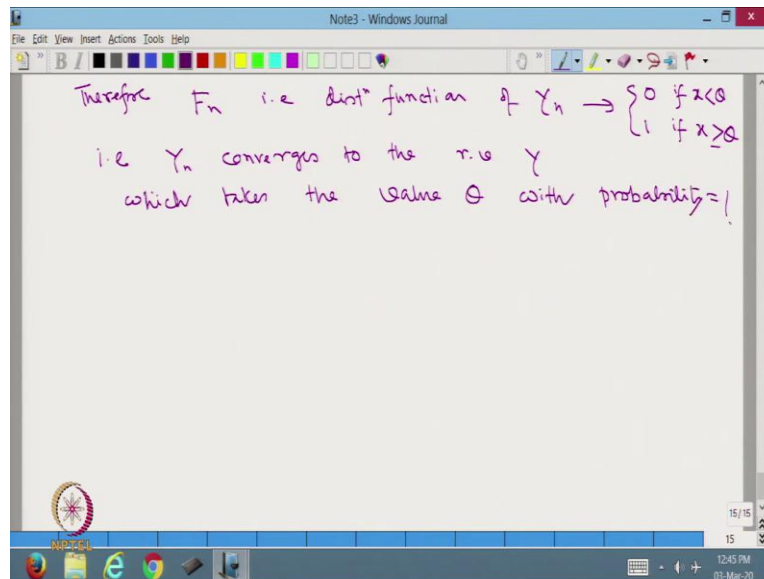 Note3 - Windows Journal
File Edit View Insert Actions Tools Help
Therefore Fn i.e distⁿ function of Yn → { 0 if x<θ
1 if x≥θ
i.e Yn converges to the r.v Y
which takes the value θ with probability=1
NPTEL
15/15
15
12:45 PM
03-Mar-20